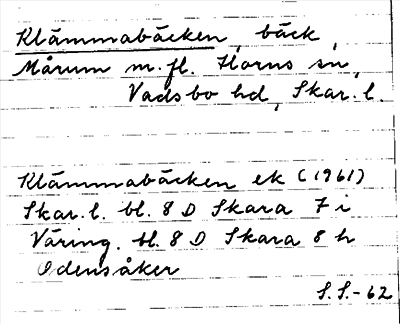 Klämmabäcken, bäck,
Mårum m.fl. Horns sn,
Vadsbo hd, Skar. l.
Klämmabäcken ek (1961)
Skar. l. bl. 8 D Skara 7 i
Väring. bl. 8 D Skara 8 h
Odensåker
S.S.-62